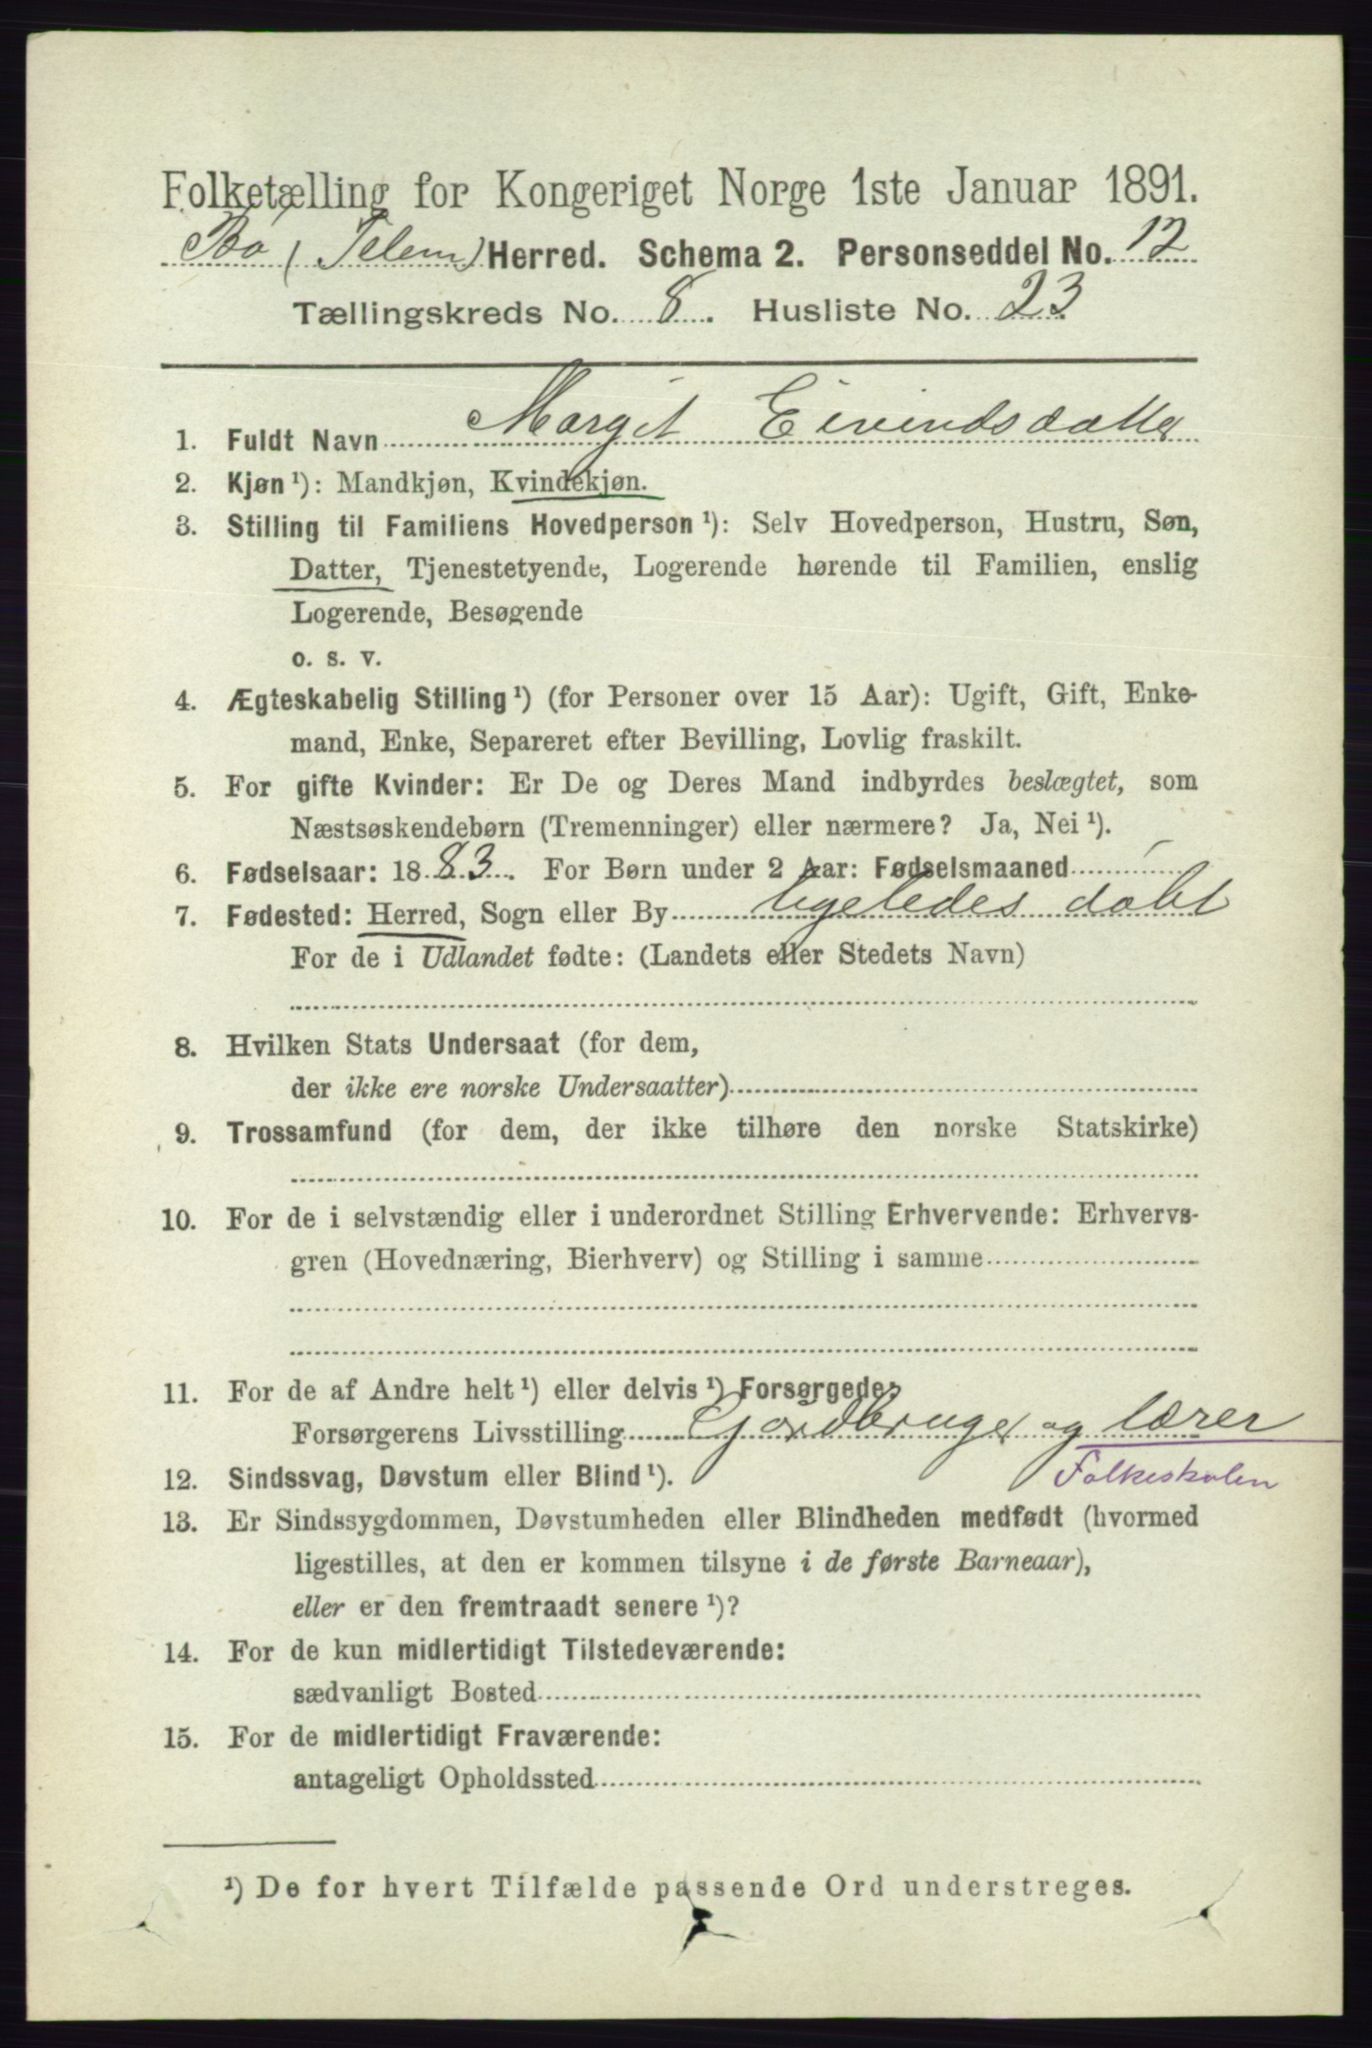 Folketælling for Kongeriget Norge 1ste Januar 1891.
Bø (Telem) Herred. Schema 2. Personseddel No. 12
Tællingskreds No. 8. Husliste No. 23
1. Fuldt Navn Margit Eivindsdatter
2. Kjøn ¹): Mandkjøn, Kvindekjøn.
3. Stilling til Familiens Hovedperson ¹): Selv Hovedperson, Hustru, Søn,
Datter, Tjenestetyende, Logerende hørende til Familien, enslig
Logerende, Besøgende
o. s. v.
4. Ægteskabelig Stilling ¹) (for Personer over 15 Aar): Ugift, Gift, Enke-
mand, Enke, Separeret efter Bevilling, Lovlig fraskilt.
5. For gifte Kvinder: Er De og Deres Mand indbyrdes beslægtet, som
Næstsøskendebørn (Tremenninger) eller nærmere? Ja, Nei ¹).
6. Fødselsaar: 1883. For Børn under 2 Aar: Fødselsmaaned
7. Fødested: Herred, Sogn eller By ligeledes døbt
For de i Udlandet fødte: (Landets eller Stedets Navn)
8. Hvilken Stats Undersaat (for dem,
der ikke ere norske Undersaatter)
9. Trossamfund (for dem, der ikke tilhøre den norske Statskirke)
10. For de i selvstændig eller i underordnet Stilling Erhvervende: Erhvervs-
gren (Hovednæring, Bierhverv) og Stilling i samme
11. For de af Andre helt ¹) eller delvis ¹) Forsørgede:
Forsørgerens Livsstilling Gjordbruger og lærer
12. Sindssvag, Døvstum eller Blind ¹). Folkeskolen
13. Er Sindssygdommen, Døvstumheden eller Blindheden medfødt (hvormed
ligestilles, at den er kommen tilsyne i de første Barneaar),
eller er den fremtraadt senere ¹)?
14. For de kun midlertidigt Tilstedeværende:
sædvanligt Bosted
15. For de midlertidigt Fraværende:
antageligt Opholdssted
¹) De for hvert Tilfælde passende Ord understreges.